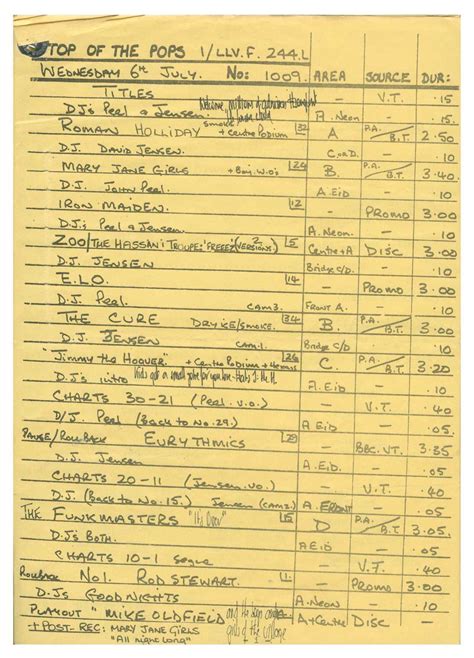 TOP OF THE POPS 1/LLV.F. 244.L
WEDNESDAY 6TH JULY. No: 1009. AREA SOURCE DUR:
TITLES — V.T. .15
DJ's Peel & Jensen. A.Neon — .15
ROMAN HOLLIDAY smoke + Centre Podium 32 A P.A./B.T. 2.50
D.J. DAVID JENSEN. C.orD. — .10
MARY JANE GIRLS + Boy. W.O's 24 B P.A./B.T. 3.40
D.J. JOHN PEEL. A.Eid — .10
IRON MAIDEN. 12 — PROMO 3.00
DJ's Peel & Jensen A.Neon. — .10
ZOO/THE HASSANI TROUPE: 'FREEEZ' (VERSION 2) 5 Centre+A DISC 3.00
D.J. JENSEN Bridge C/D. — .10
E.L.O. 14 — PROMO 3.00
D.J. Peel. CAM 3. FRONT A. — .10
THE CURE DRY ICE/SMOKE. 34 B. P.A./B.T. 3.00
D.J. JENSEN CAM.1. Bridge C/D — .10
"JIMMY THE HOOVER" + Centre Podium + 26 C. P.A./B.T. 3.20
DJ's intro A.Eid — .10
CHARTS 30-21 (PEEL. V.O.) — V.T. .40
D/J. Peel (Back to No.29.) A.Eid. — .05
PAUSE/ROLL BACK EURYTHMICS 29 — BBC.VT. 3.35
D.J. Jensen A.Eid. — .05
CHARTS 20-11 (Jensen.VO.) — V.T. .40
D.J. (Back to No.15.) Jensen (CAM 2.) A.FRONT — .05
THE FUNKMASTERS "It's Over" 15 D P.A./B.T. 3.05.
D.J's Both. A Eid — .05
CHARTS 10-1 segue — V.T. .40
Rollback No1. ROD STEWART. — PROMO 3.00
DJ's GOODNIGHTS A.Neon — .10
PLAYOUT "MIKE OLDFIELD A+Centre DISC —
+POST-REC: MARY JANE GIRLS
"All night long"